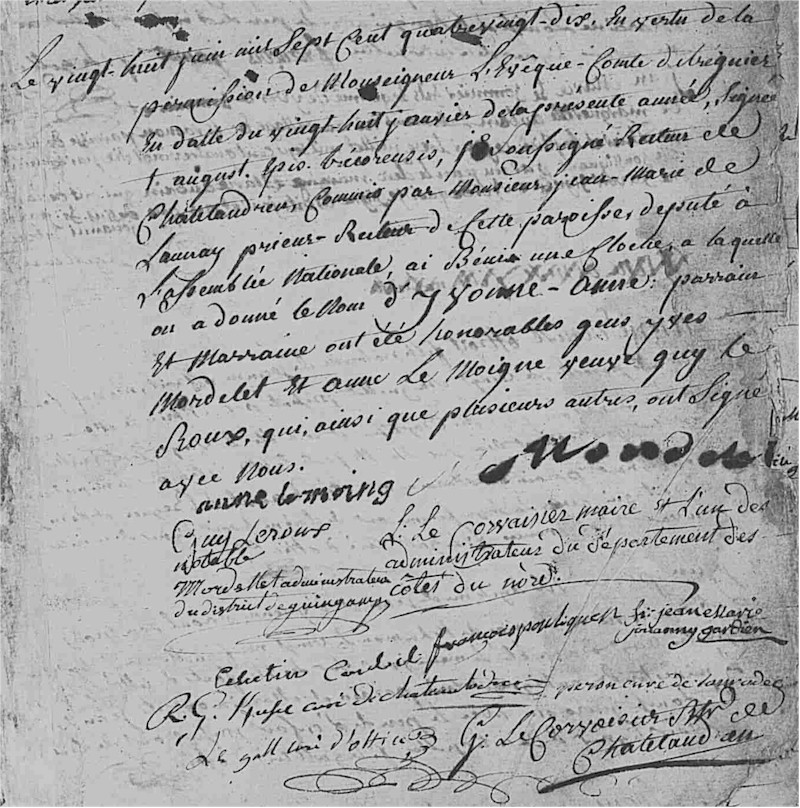 Le vingt-huit juin mil Sept Cent quatrevingt-dix, En vertu de la
permission de Monseigneur L'Evêque-Comte de tréguier
En datte du vingt-huit janvier de la présente année, Signée
† august. Epis. trécorensis, je soussigné Recteur de
Châtelaudren, Commis par Monsieur jean-Marie de
Launay prieur-Recteur de Cette paroisse, deputé à
L'assemblée Nationale, ai Béni une Cloche, a laquelle
on a donné le Nom d'Yvonne-Anne: parrain
Et Marraine ont été honorables gens yves
Mordelet Et anne Le Moigne veuve guy le
Roux, qui, ainsi que plusieurs autres, ont Signé
avec Nous.
anne le moing Mordelet
Guy Leroux
notable
L. Le Corvaisier maire et l'un des
administrateur du département des
côtes du nord.
Mordellet administrateur
du district de guingamp
françois pouliquen fr. jean Marie
gardien
Celestin Cardil
R. G. curé de chatelaudren peron curé de
Le gall curé d'office G. Le Corvaisier Rtr. de
Chatelaudren